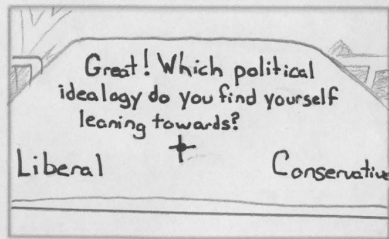 Great! Which political
idealogy do you find yourself
leaning towards?
Liberal
Conservative